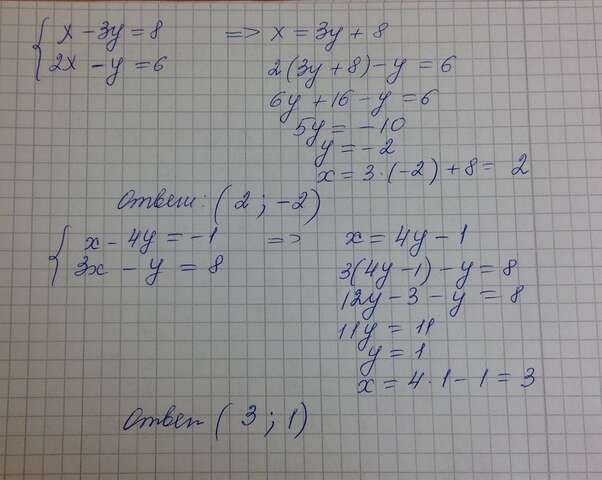 { x - 3y = 8 => x = 3y + 8
2x - y = 6 2(3y + 8) - y = 6
6y + 16 - y = 6
5y = -10
y = -2
x = 3 · (-2) + 8 = 2
Ответ: (2 ; -2)
{ x - 4y = -1 => x = 4y - 1
3x - y = 8 3(4y - 1) - y = 8
12y - 3 - y = 8
11y = 11
y = 1
x = 4 · 1 - 1 = 3
Ответ (3 ; 1)